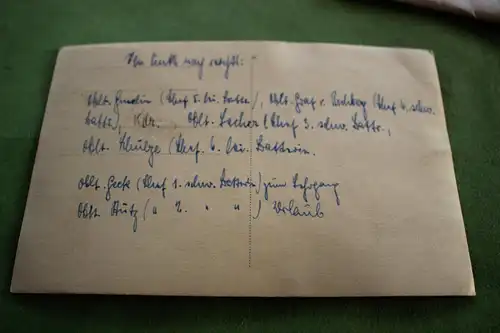 Von links nach rechts:
Oblt. Gmelin (Chef 5. lei. Batter.), Oblt. Graf v. Rechberg (Chef 4. schw.
Battr.), Kdr. , Oblt. Locher (Chef 3. schw. Battr.,
Oblt. Schulze (Chef 6. lei. Batterie.
Oblt. Geck (Chef 1. schw. Batterie) zum Lehrgang
Oblt. Kutz (" 2. " ") Urlaub